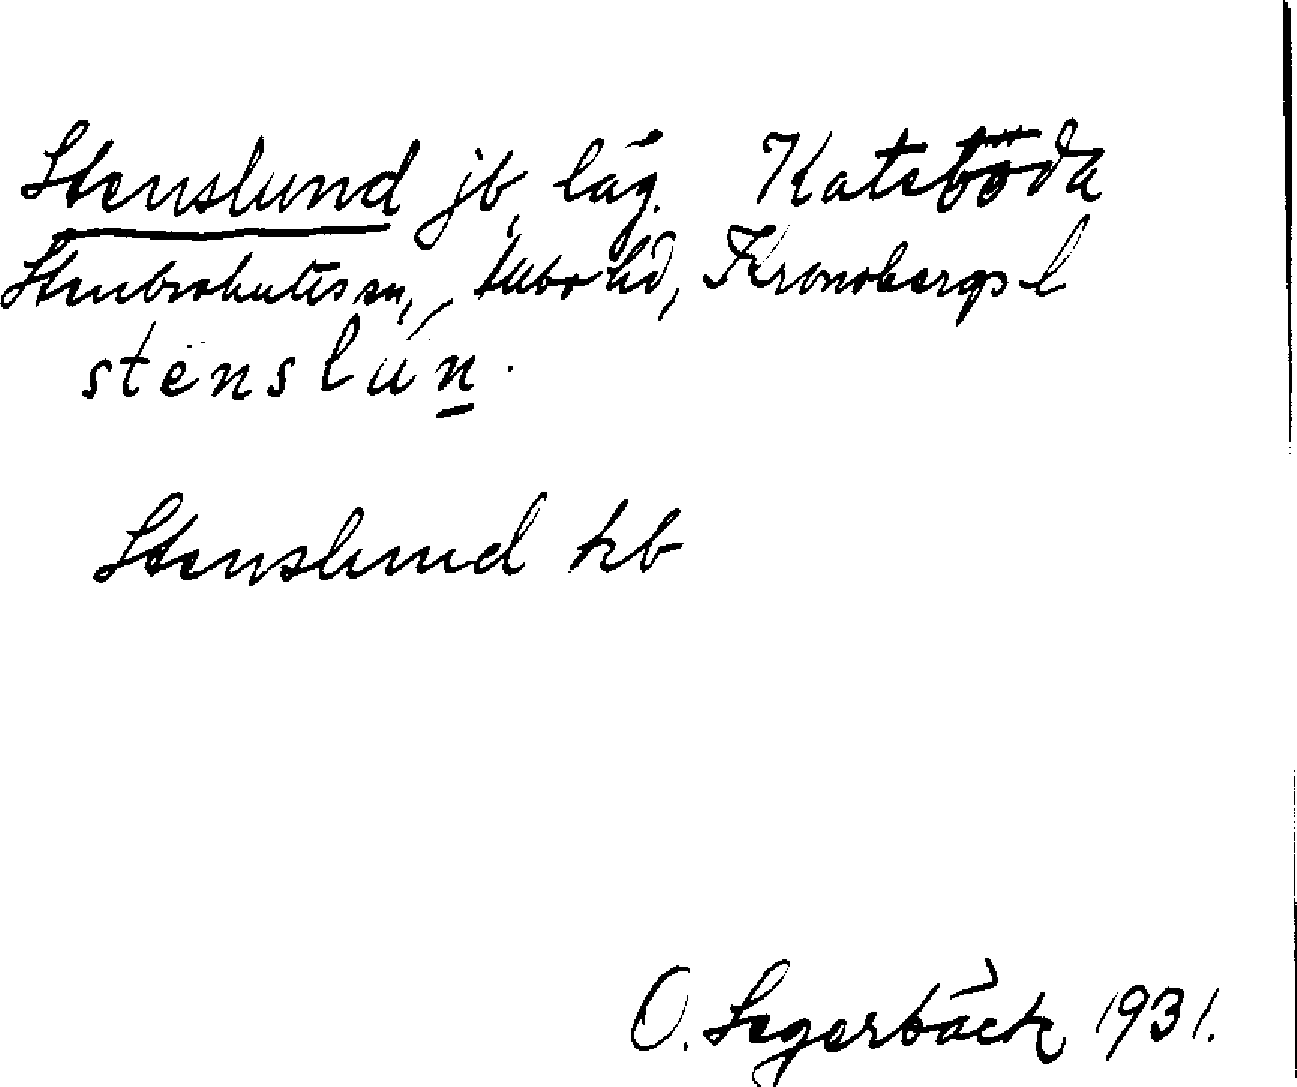 Stenslund jb, läg. Kateböda
Stenbrohults sn, Albo hd, Kronobergs l
stenslún.
Stenslund kb
O. Segerbäck 1931.